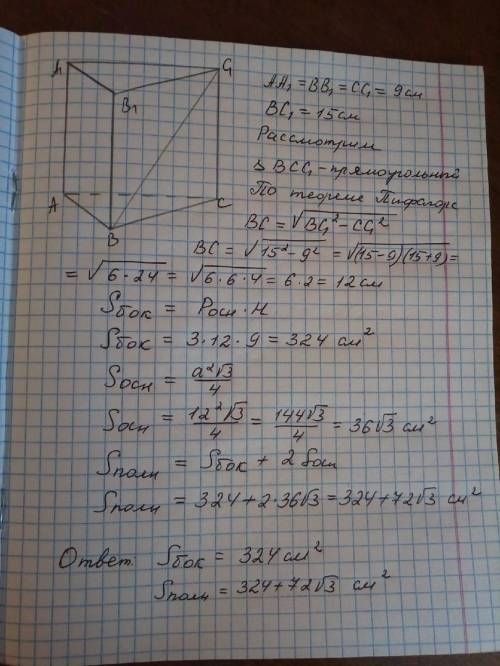 A₁
C₁
B₁
A
C
B
AA₁ = BB₁ = CC₁ = 9 см
BC₁ = 15 см
Рассмотрим
△ BCC₁ - прямоугольный
По теореме Пифагора
BC = √BC₁² - CC₁²
BC = √15² - 9² = √(15-9)(15+9) =
= √6·24 = √6·6·4 = 6·2 = 12 см
Sбок = Pосн · H
Sбок = 3·12·9 = 324 см²
Sосн = a²√3/4
Sосн = 12²√3/4 = 144√3/4 = 36√3 см²
Sполн = Sбок + 2 Sосн
Sполн = 324 + 2·36√3 = 324 + 72√3 см²
Ответ. Sбок = 324 см²
Sполн = 324 + 72√3 см²